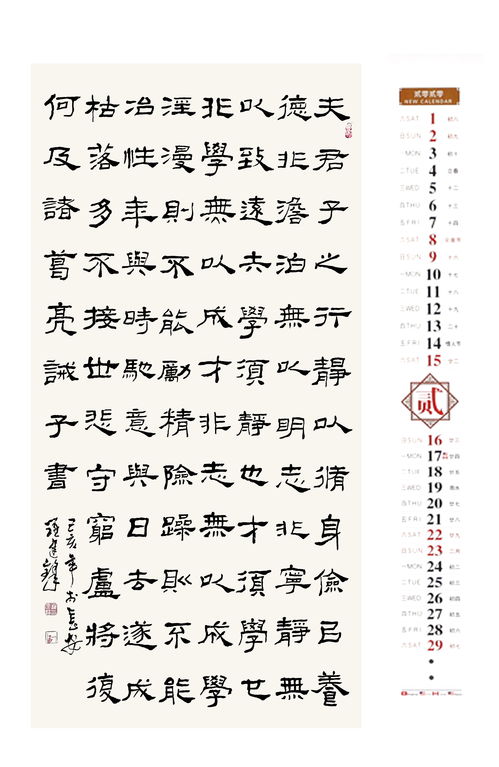 夫君子之行靜以脩身儉㠯養
德非澹泊無以明志非寧靜無
以致遠夫學須靜也才須學也
非學無以成才非志無以成學
淫漫則不能勵精險躁則不能
冶性年與時馳意與日去遂成
枯落多不接世悲守窮盧將復
何及諸葛亮誡子書
己亥年於長安
贰零贰零
NEW CALENDAR
六 SAT. 1 初八
日 SUN 2 初九
一 MON 3 初十
二 TUE 4 立春
三 WED 5 十二
四 THU 6 十三
五 FRI 7 十四
六 SAT. 8 元宵节
日 SUN 9 十六
一 MON 10 十七
二 TUE 11 十八
三 WED 12 十九
四 THU 13 二十
五 FRI 14 情人节
六 SAT. 15 廿二
贰
日 SUN 16 廿三
一 MON 17 廿四
二 TUE 18 廿五
三 WED 19 雨水
四 THU 20 廿七
五 FRI 21 廿八
六 SAT. 22 廿九
日 SUN 23 二月
一 MON 24 初二
二 TUE 25 初三
三 WED 26 初四
四 THU 27 初五
五 FRI 28 初六
六 SAT. 29 初七